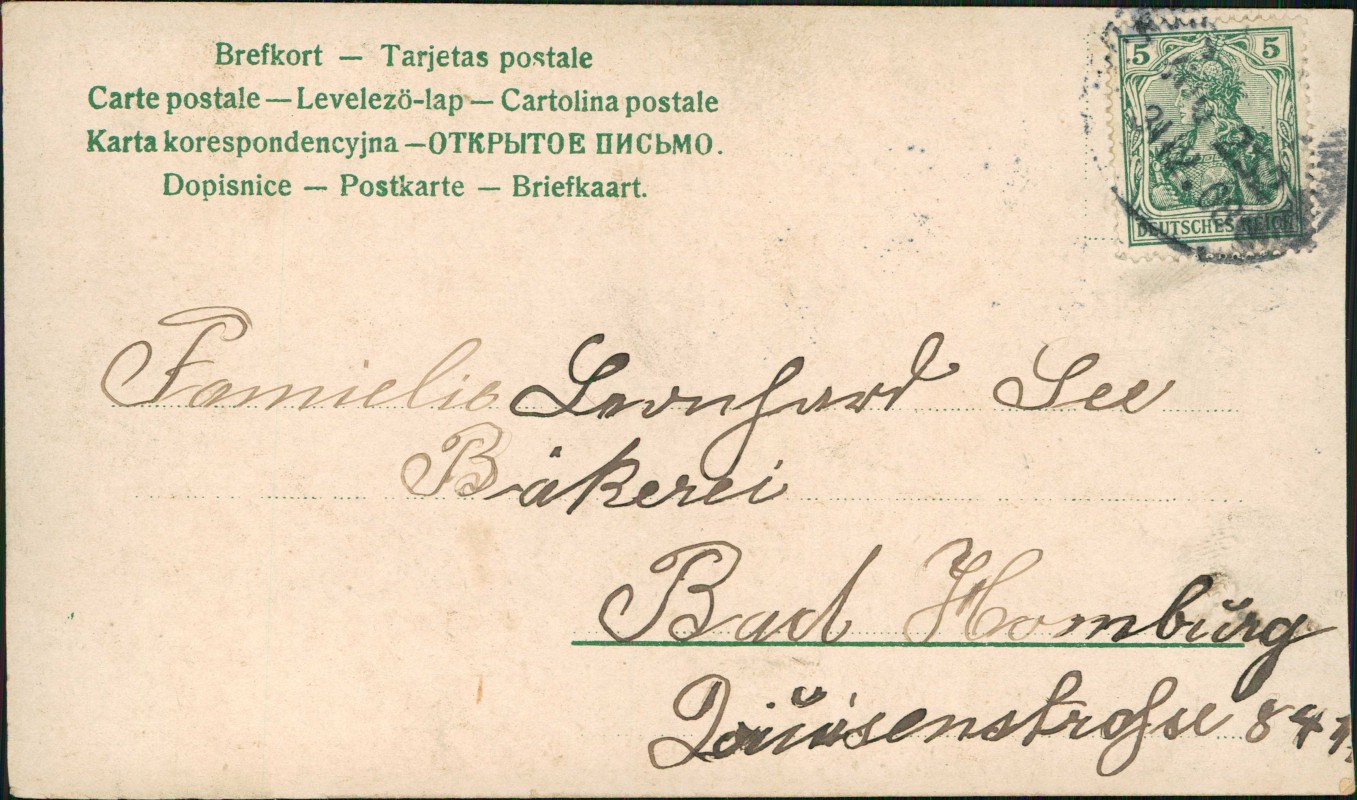 Brefkort — Tarjetas postale
Carte postale — Levelezö-lap — Cartolina postale
Karta korespondencyjna — ОТКРЫТОЕ ПИСЬМО.
Dopisnice — Postkarte — Briefkaart.
5 5
DEUTSCHES REICH
Famielie Leonhard See
Bäkerei
Bad Homburg
Louisenstraße 84